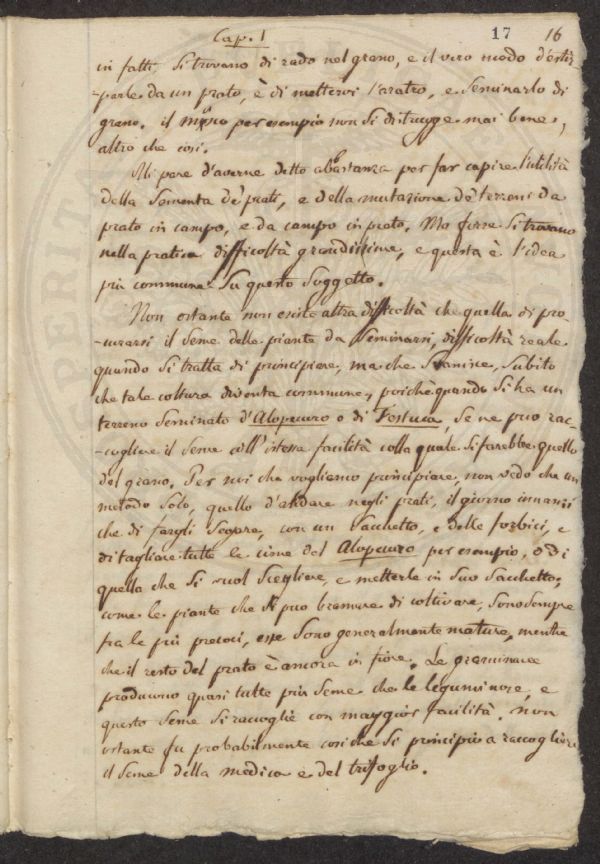 Cap. 1 17 16
in fatti, si trovano di rado nel grano, e il vero modo d'estir-
-parle da un prato, è di mettervi l'aratro, e seminarlo di
grano. il per esempio non si distrugge mai bene,
altro che così.
Mi pare d'averne detto abbastanza per far capire l'utilità
della sementa de' prati, e della mutazione de' terreni da
prato in campo, e da campo in prato. Ma forse si trovano
nella pratica difficoltà grandissime, e questa è l'idea
più commune su questo soggetto.
Non ostante non esiste altra difficoltà che quella di pro-
-curarsi il seme delle piante da seminarsi, difficoltà reale
quando si tratta di principiare, ma che svanisce, subito
che tale coltura diventa commune, poichè quando si ha un
terreno seminato d'Alopecuro o di Festuca, se ne può rac-
-cogliere il seme coll'istessa facilità colla quale si farebbe quello
del grano. Per noi che vogliamo principiare, non vedo che un
metodo solo, quello d'andare negli prati, il giorno innanzi
che di fargli segare, con un sacchetto, e delle forbici, e
di tagliare tutte le cime del Alopecuro per esempio, o di
quella che si vuol scegliere, e metterle in suo sacchetto;
come le piante che si può bramare di coltivare, sono sempre
fra le più precoci, esse sono generalmente mature, mentre
che il resto del prato è ancora in fiore. Le graminacee
producono quasi tutte più seme che le leguminose, e
questo seme si raccoglie con maggior facilità. Non
ostante fu probabilmente così che si principiò a raccogliere
il seme della medica e del trifoglio.